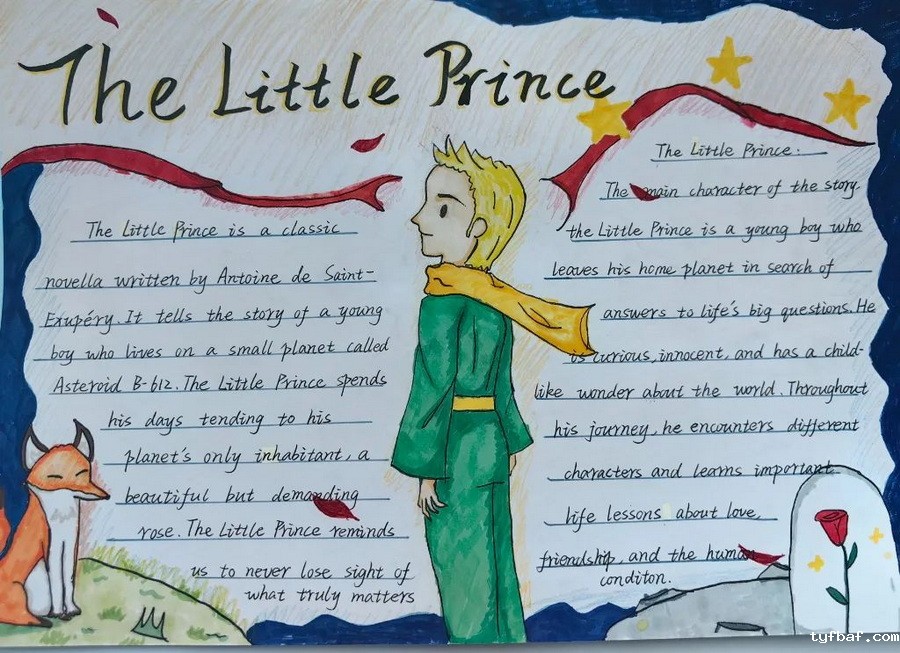 The Little Prince
The Little Prince is a classic
novella written by Antoine de Saint-
Exupéry. It tells the story of a young
boy who lives on a small planet called
Asteroid B-612. The Little Prince spends
his days tending to his
planet's only inhabitant, a
beautiful but demanding
rose. The Little Prince reminds
us to never lose sight of
what truly matters
The Little Prince.
The main character of the story
the Little Prince is a young boy who
leaves his home planet in search of
answers to life's big questions. He
is curious, innocent, and has a child-
like wonder about the world. Throughout
his journey, he encounters different
characters and learns important
life lessons about love,
friendship, and the human
conditon.
tyfbaf.com